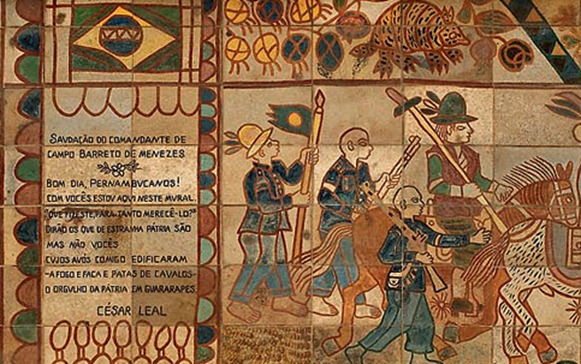 SAVDAÇÃO DO COMANDANTE DE
CAMPO BARRETO DE MENEZES
BOM DIA, PERNAMBVCANOS!
COM VOCÊS ESTOV AQVI NESTE MVRAL.
"QVE FIZESTE, PARA TANTO MERECÊ-LO?"
DIRÃO OS QVE DE ESTRANHA PÁTRIA SÃO
MAS NÃO VOCÊS
CVJOS AVÓS COMIGO EDIFICARAM
-A FOGO E FACA E PATAS DE CAVALOS-
O ORGVLHO DA PÁTRIA EM GVARARAPES
CÉSAR LEAL